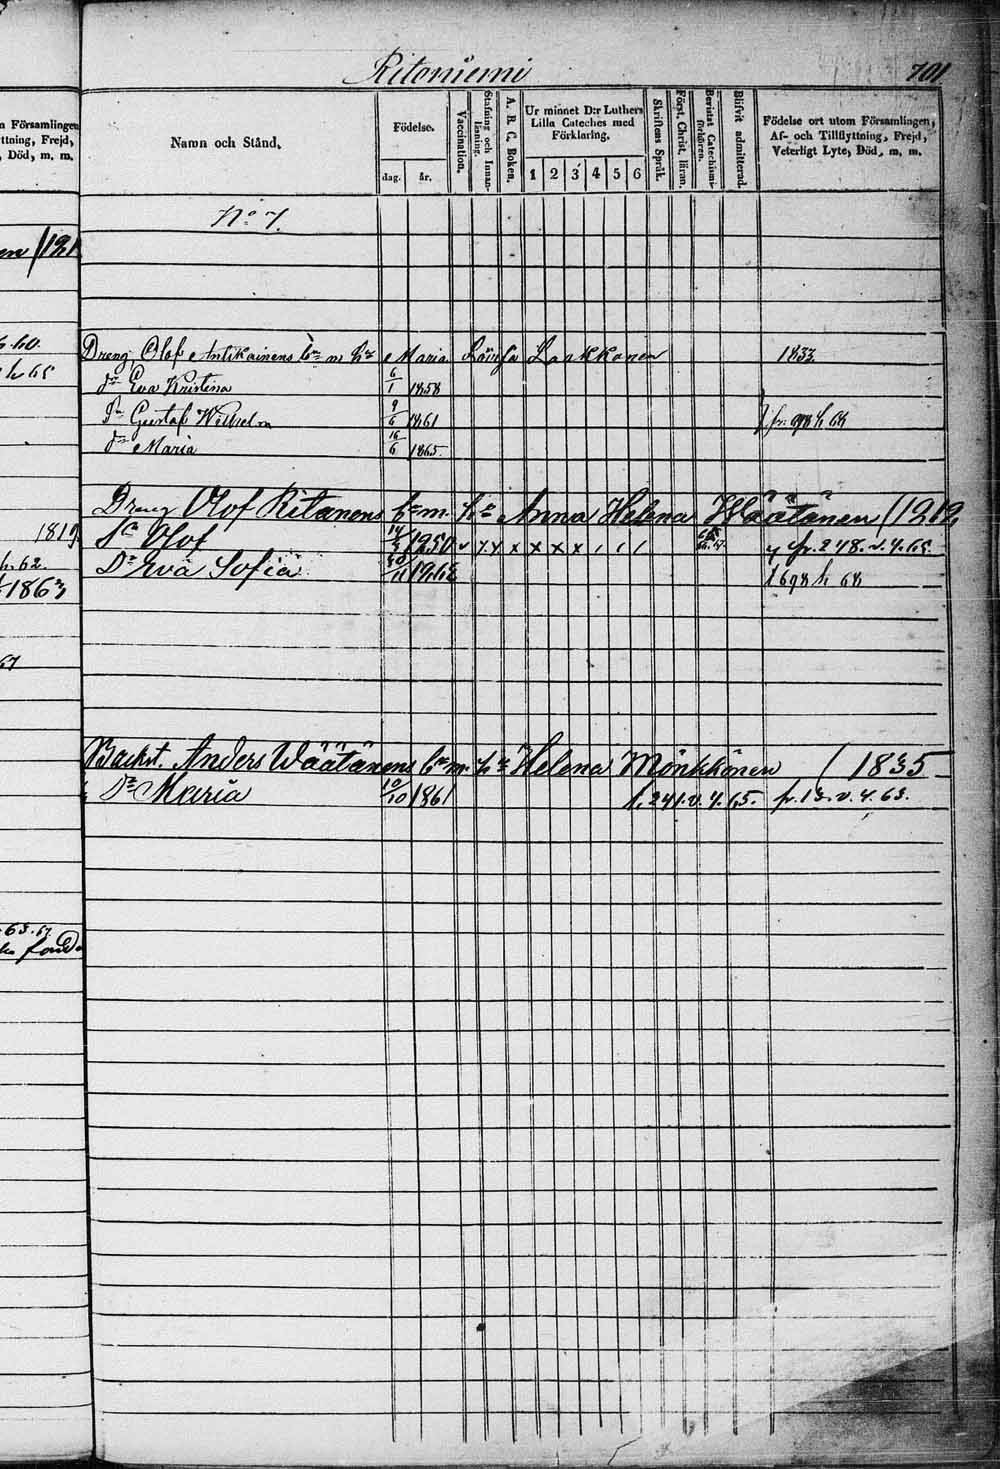 Ritoniemi 701
n Församlingen
ttning, Frejd,
, Död, m. m.
Namn och Stånd.
Födelse.
dag. år.
Vaccination.
Stafning och Innan-läsning.
A. B. C. Boken.
Ur minnet D:r Luthers
Lilla Cateches med
Förklaring.
1 2 3 4 5 6
Skriftens Språk.
Först. Christ. läran.
Bevistat Catechismi-förhören.
Blifvit admitterad.
Födelse ort utom Församlingen,
Af- och Tillflyttning, Frejd,
Veterligt Lyte, Död, m. m.
No 7.
Dreng Olof Antikainens bn m hu Maria Lovisa Laakkonen 1833
dr Eva Kristina 6/1 1858
Sn Gustaf Wilhelm 9/6 1861 fr. 698 h 68
dr Maria 16/6 1865
Dreng Olof Ritanens bn m. hu Anna Helena Wäätänen (1212
1819
Sn Olof 14/3 1250 v y y x x x x / / / fr. 248. v. 4. 65.
h. 62.
Dr Eva Sofia 30/11 1262 t 698 h 68
1863
67
Backst. Anders Wäätänens bn m. hu Helena Mönkkönen (1835
Dr Maria 10/10 1861 t. 241. v. 4. 65. fr. 13. v. 4. 63.
63. 67.